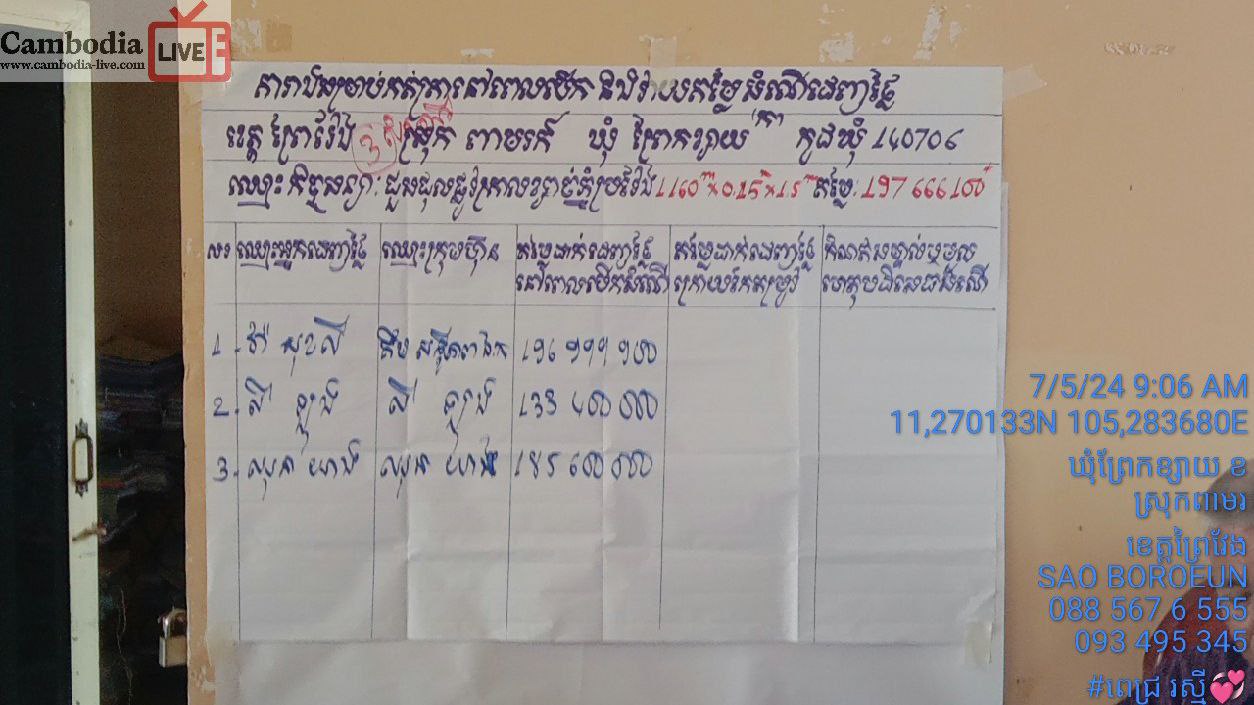 Cambodia LIVE
www.cambodia-live.com
តារាងសម្រាប់កត់ត្រានៅពេលបើក និងវាយតម្លៃសំណើដេញថ្លៃ
ខេត្ត ព្រៃវែង ស្រុក ពាមរក៍ ឃុំ ព្រែកខ្សាយ "ក" កូដឃុំ 140706
ឈ្មោះកិច្ចសន្យា: ជួសជុលផ្លូវក្រាលខ្សាច់ភ្នំប្រវែង 1160ᵐ×0.15ᵐ× តម្លៃ: 197 666 100៛
លរ ឈ្មោះអ្នកដេញថ្លៃ ឈ្មោះក្រុមហ៊ុន តម្លៃដាក់ដេញថ្លៃ តម្លៃដាក់ដេញថ្លៃ កំណត់សម្គាល់ឬមូល
នៅពេលបើកសំណើ ក្រោយកែតម្រូវ ហេតុបដិសេធសំណើ
1. សុខលី
2. លី ឡុង លី ឡុង
3. យោង យោង
7/5/24 9:06 AM
11,270133N 105,283680E
ឃុំព្រែកខ្សាយ ខ
ស្រុកពាមរ
ខេត្តព្រៃវែង
SAO BOROEUN
088 567 6 555
093 495 345
#ពេជ្រ រស្មី💞